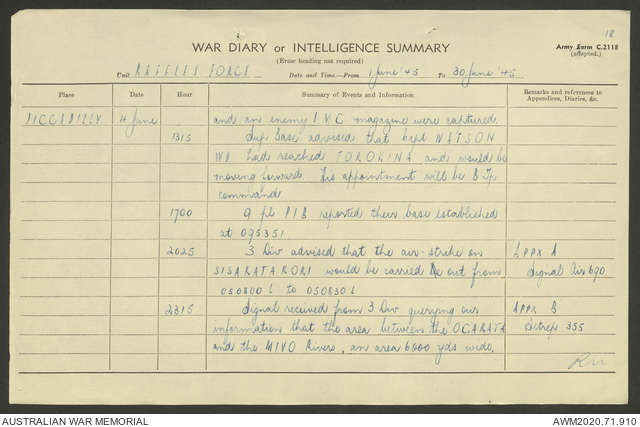 18
WAR DIARY or INTELLIGENCE SUMMARY
Army Form C.2118
(adapted.)
(Erase heading not required)
Unit RAFFLES FORCE Date and Time.—From 1 June '45 To 30 June '45
Place Date Hour Summary of Events and Information Remarks and references to Appendices, Diaries, &c.
PICCADILLY 4 June and an enemy LMG magazine were captured.
1315 Sup Base advised that Capt WATSON
had reached TOROKINA and would be
moving forward. His appointment will be B Tp
command
1700 9 pl PIB reported their base established
at 095351
2025 3 Div advised that the air-strike on APPX A
SISARATAKORI would be carried out from Signal Air 690
050800 L to 050830 L
2315 Signal received from 3 Div querying our APPX B
information that the area between the OGARATA Sitrep 355
and the MIVO Rivers, an area 6000 yds wide.
AUSTRALIAN WAR MEMORIAL AWM2020.71.910